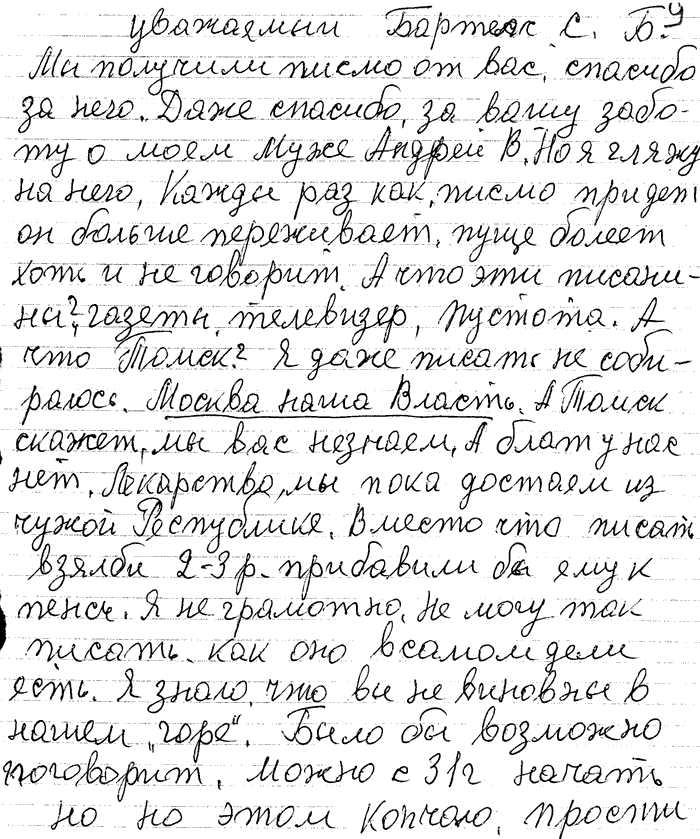 уважаемый Бартеяс С. Б.
Мы получили писмо от вас, спасибо
за него. Даже спасибо, за вашу забо-
ту о моем Муже Андрей В. Но я гляжу
на него, Кажды раз как, писмо придет
он больше переживает, пуще болеет
хоть и не говорит. А что эти писани-
ны?, газеты, телевизер, пустота. А
что Томск? Я даже писать не соби-
ралось. Москва наша Власть. А Томск
скажет, мы вас незнаем, А блат у нас
нет. Лекарства, мы пока достаем из
чужой Республике. Вместо что писать
взялбы 2-3 р. прибавили бы ему к
пенси. Я не грамотно, не могу так
писать. как оно всамом дели
есть. Я знаю, что вы не виновны в
нашем "горе". Было бы возможно
поговорит. Можно с 31г начать
но на этом кончаю, прости